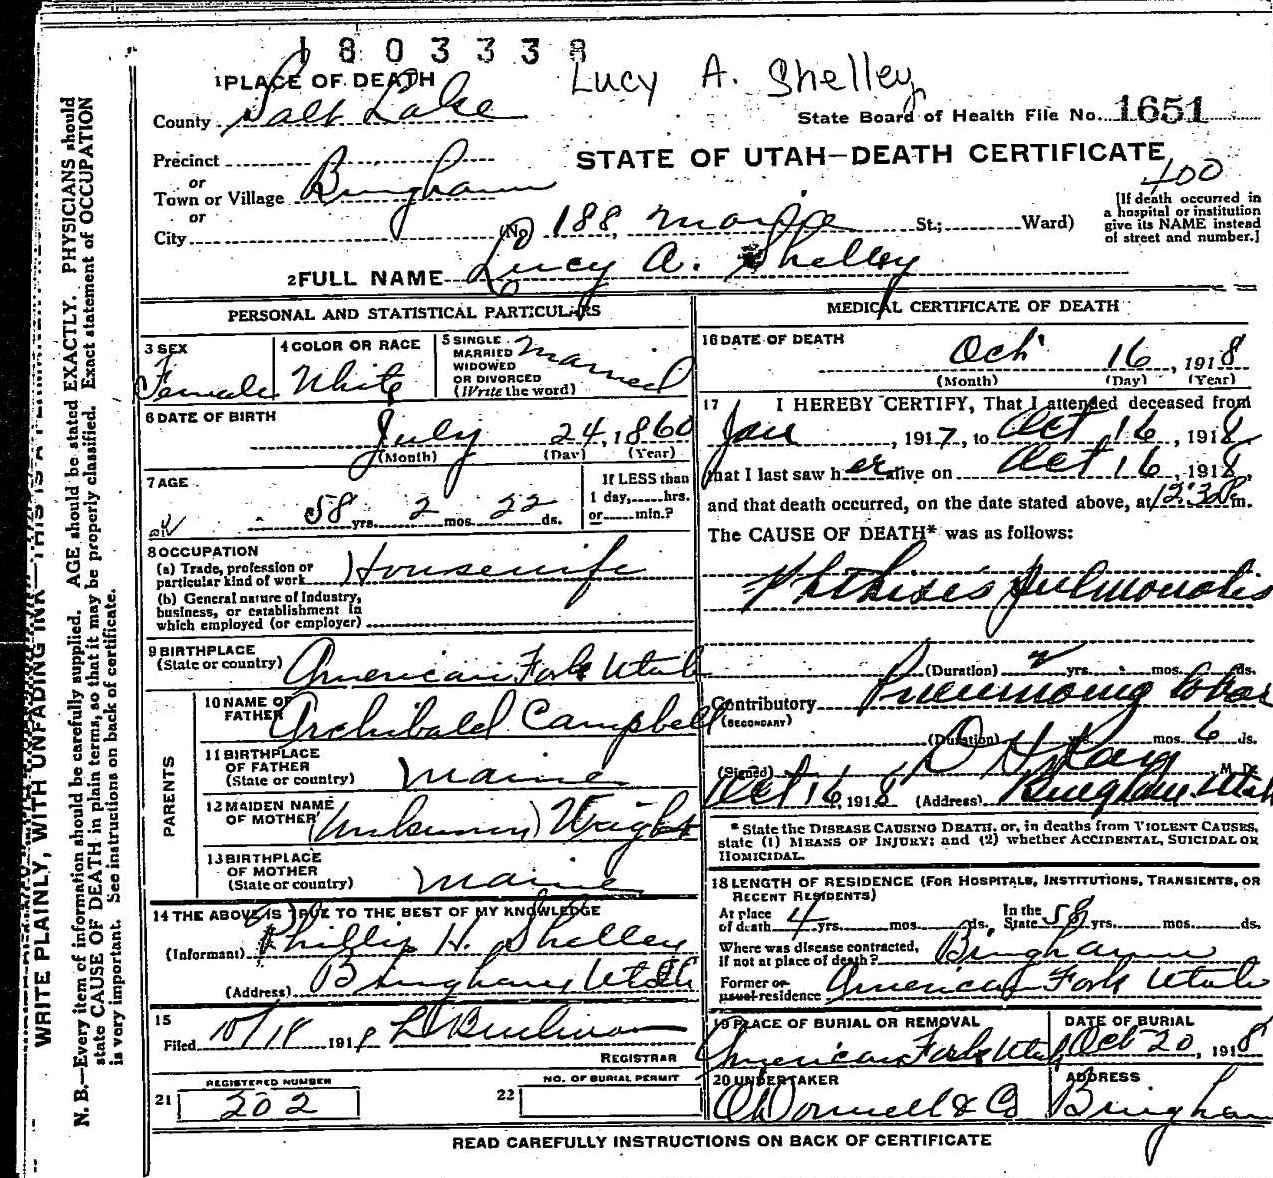 1803338
Lucy A. Shelley
1 PLACE OF DEATH
County Salt Lake
State Board of Health File No. 1651
STATE OF UTAH—DEATH CERTIFICATE
Precinct
or
Town or Village Bingham
or
City
400
(No. 188, St.; Ward)
[If death occurred in
a hospital or institution
give its NAME instead
of street and number.]
2 FULL NAME Lucy A. Shelley
PERSONAL AND STATISTICAL PARTICULARS
3 SEX
Female
4 COLOR OR RACE
White
5 SINGLE
MARRIED
WIDOWED
OR DIVORCED
(Write the word)
Married
6 DATE OF BIRTH
July 24, 1860
(Month) (Day) (Year)
7 AGE
58 yrs. 2 mos. 22 ds.
If LESS than
1 day, hrs.
or min.?
8 OCCUPATION
(a) Trade, profession or
particular kind of work Housewife
(b) General nature of Industry,
business, or establishment in
which employed (or employer)
9 BIRTHPLACE
(State or country) American Fork Utah
PARENTS
10 NAME OF
FATHER Archibald Campbell
11 BIRTHPLACE
OF FATHER
(State or country) Maine
12 MAIDEN NAME
OF MOTHER (Unknown) Wright
13 BIRTHPLACE
OF MOTHER
(State or country) Maine
14 THE ABOVE IS TRUE TO THE BEST OF MY KNOWLEDGE
(Informant) Phillip H. Shelley
(Address) Bingham Utah
15
Filed 10/18 191
REGISTRAR
21 REGISTERED NUMBER
202
22 NO. OF BURIAL PERMIT
MEDICAL CERTIFICATE OF DEATH
16 DATE OF DEATH
Oct 16, 1918
(Month) (Day) (Year)
17 I HEREBY CERTIFY, That I attended deceased from
Jan, 1917, to Oct 16, 1918,
that I last saw her alive on Oct 16, 1918,
and that death occurred, on the date stated above, at 12:30 P m.
The CAUSE OF DEATH* was as follows:
Phthisis pulmonalis
(Duration) 2 yrs. mos. ds.
Contributory Pneumonia lobar
(SECONDARY)
(Duration) yrs. mos. 6 ds.
(Signed) M. D.
Oct 16 1918 (Address) Bingham Utah
* State the DISEASE CAUSING DEATH, or, in deaths from VIOLENT CAUSES,
state (1) MEANS OF INJURY; and (2) whether ACCIDENTAL, SUICIDAL OR
HOMICIDAL.
18 LENGTH OF RESIDENCE (FOR HOSPITALS, INSTITUTIONS, TRANSIENTS, OR
RECENT RESIDENTS)
At place
of death 4 yrs. mos. ds. In the
State 58 yrs. mos. ds.
Where was disease contracted,
if not at place of death? Bingham
Former or
usual residence American Fork Utah
19 PLACE OF BURIAL OR REMOVAL
American Fork Utah
DATE OF BURIAL
Oct 20, 1918
20 UNDERTAKER
O'Donnell & Co
ADDRESS
Bingham
READ CAREFULLY INSTRUCTIONS ON BACK OF CERTIFICATE
WRITE PLAINLY, WITH UNFADING INK—THIS IS A PERMANENT
N. B.—Every item of information should be carefully supplied. AGE should be stated EXACTLY. PHYSICIANS should
state CAUSE OF DEATH in plain terms, so that it may be properly classified. Exact statement of OCCUPATION
is very important. See instructions on back of certificate.